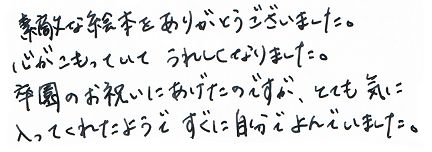 素敵な絵本をありがとうございました。
心がこもっていて うれしくなりました。
卒園のお祝いにあげたのですが、とても気に
入ってくれたようで すぐに自分でよんでいました。